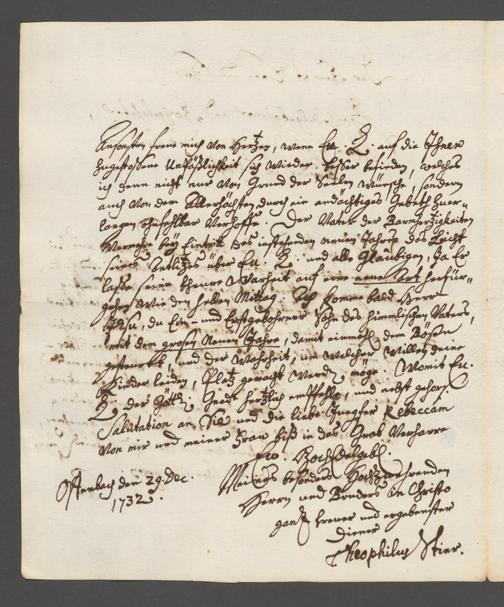 Ansonsten freue mich von Hertzen, wenn Eu. L. auf die Ihnen
zugestossene Unpäßlichkeit sich wieder besser befinden, welches
ich denn nicht nur von Grund der Seelen wünsche, sondern
auch von dem Allerhöchsten durch ein andächtiges Gebeth zu er-
langen ohnfehlbar verhoffe. Der Vater der Barmhertzigkeiten
vermehre bey Eintritt des instehenden neuen Jahres das Licht
seines Antlitzes über Eu. L. und alle Gläubigen, ja Er
lasse seine theure Warheit auf eine neue Art herfür-
gehen wie den hellen Mittag. Ach komme bald Herr
JEsu, du Ein- und Erstgebohrner Sohn des himmlischen Vaters,
mit dem grosen Neuen Jahre, damit einmahl dem Bösen
gesteuert, und der Wahrheit, um welcher willen deine
Kinder leiden, Platz gemacht werden möge. Womit Eu.
L. der Göttl. Gnade hertzlich empfehle, und nebst gehors.
Salutation an Sie und die liebe Jungfer Rebeccam
von mir und meiner Frau biß in das Grab verharre
Eu. HochEdelgeb.
Offenbach den 29. Dec.
1732.
Meines besonders Hochzuehrenden
Herrn und Bruders in Christo
gantz treuer und ergebenster
Diener
Theophilus Stier.